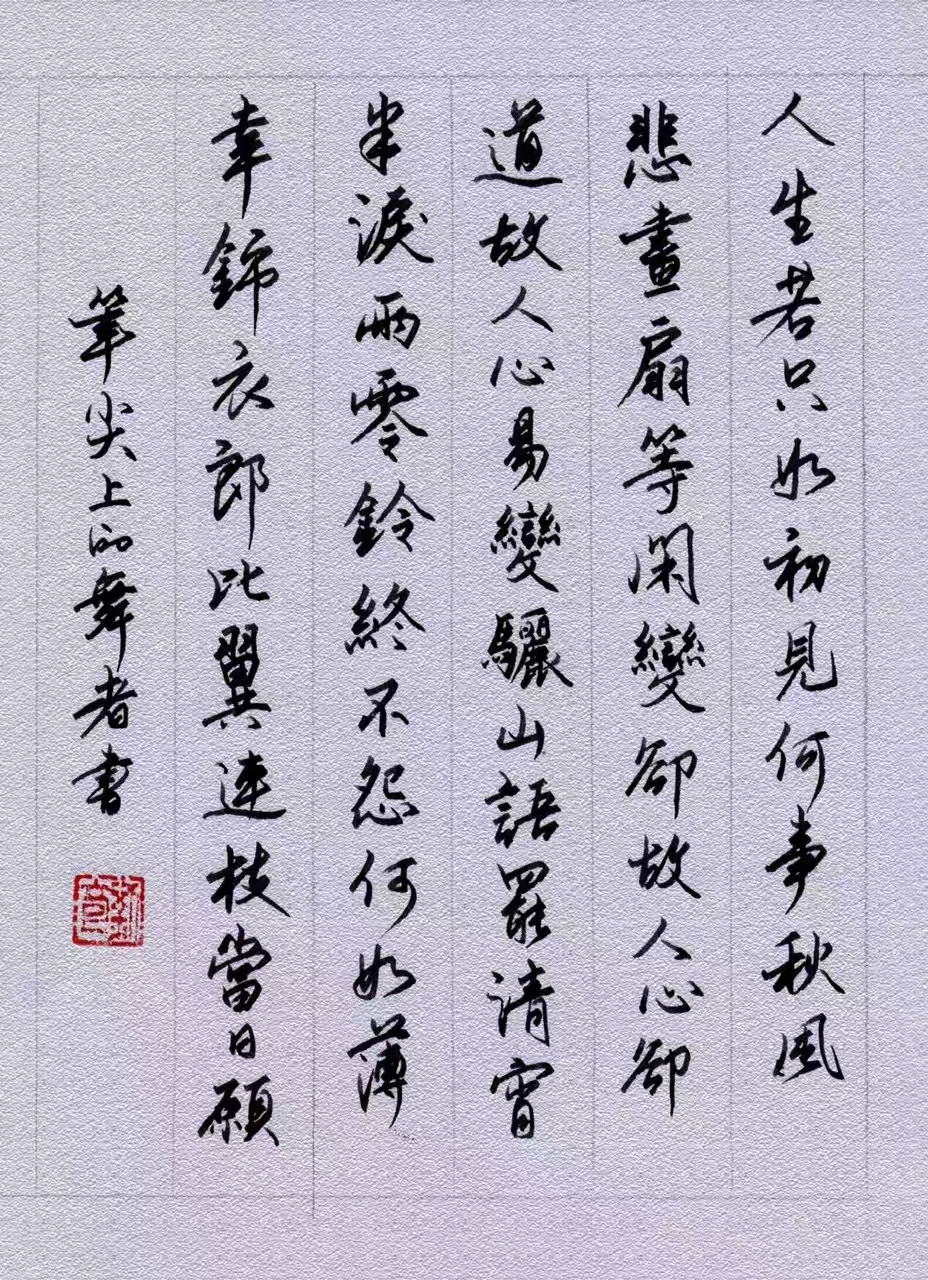 人生若只如初見何事秋風
悲畫扇等閑變卻故人心卻
道故人心易變驪山語罷清宵
半淚雨零鈴終不怨何如薄
幸錦衣郎比翼連枝當日願
筆尖上的舞者書